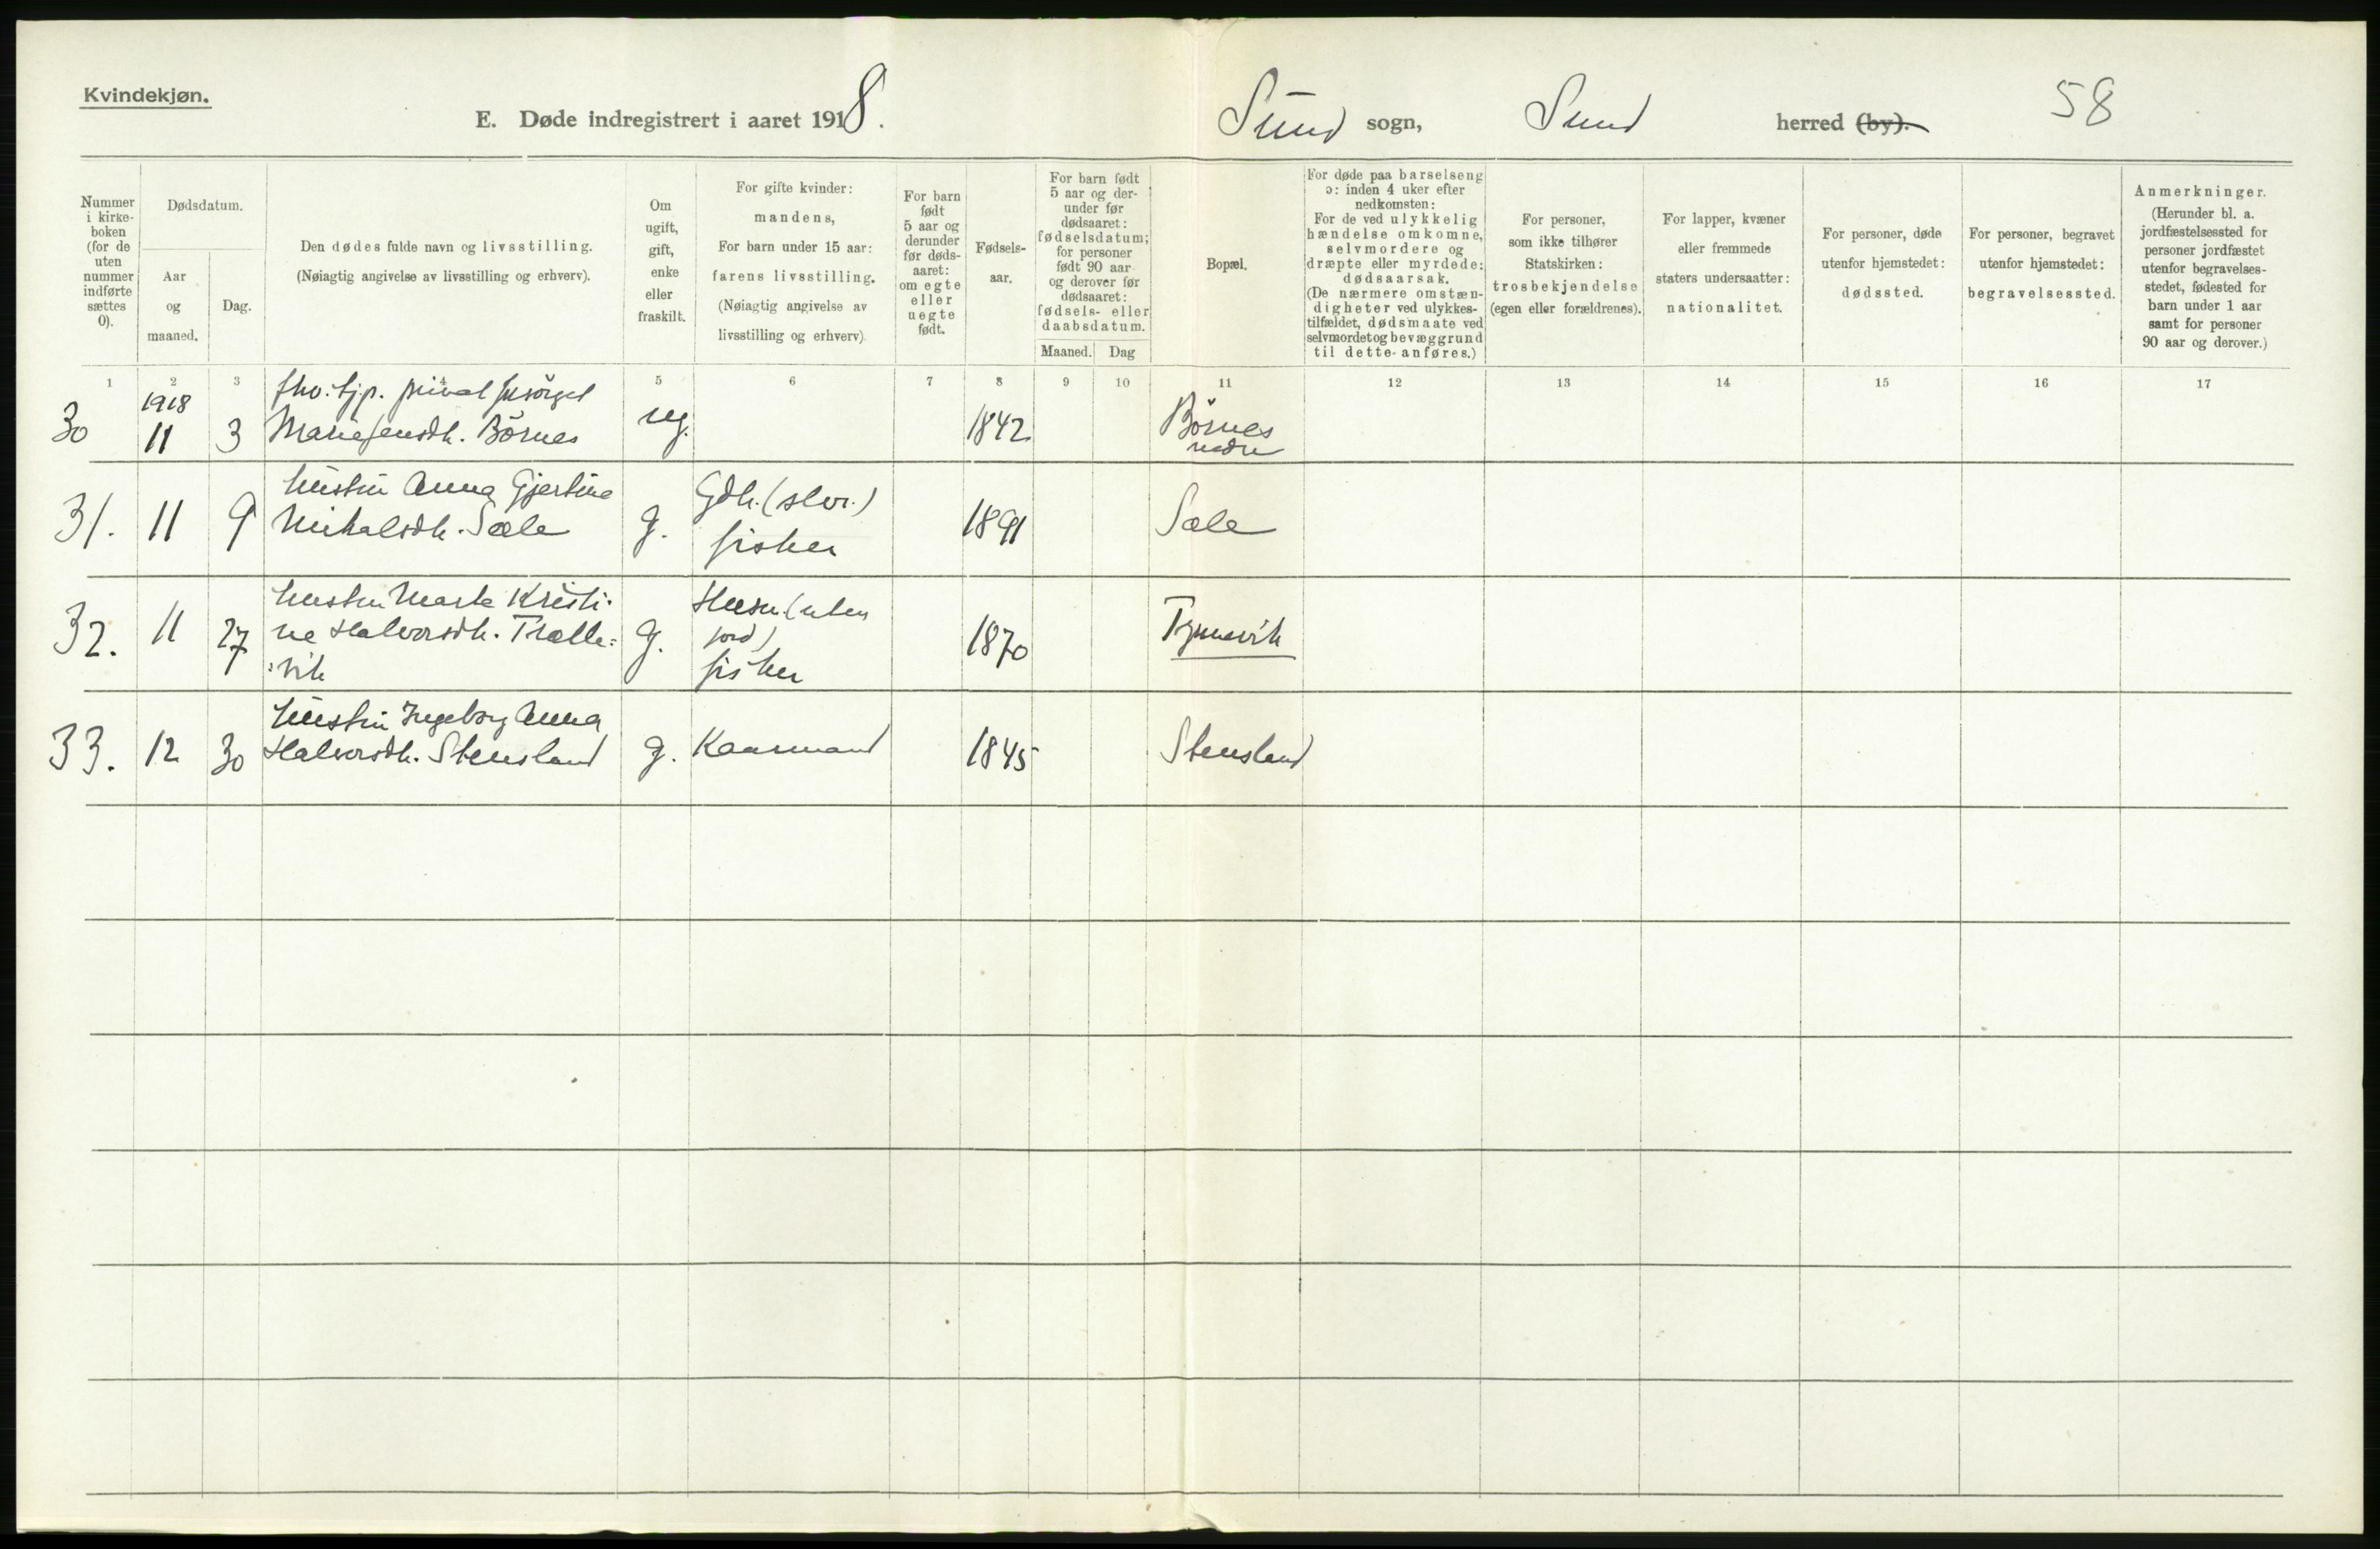 Kvindekjøn.
E. Døde indregistrert i aaret 1918.
Sund sogn, Sund herred (by).
58
Nummer i kirke-
boken
(for de
uten
nummer
indførte
sættes
0).
Dødsdatum.
Aar
og
maaned.
Dag.
Den dødes fulde navn og livsstilling.
(Nøiagtig angivelse av livsstilling og erhverv).
Om
ugift,
gift,
enke
eller
fraskilt.
For gifte kvinder:
mandens,
For barn under 15 aar:
farens livsstilling.
(Nøiagtig angivelse av
livsstilling og erhverv)
For barn
født
5 aar og
derunder
før døds-
aaret:
om egte
eller
uegte
født.
Fødsels-
aar.
For barn født
5 aar og der-
under før
dødsaaret:
fødselsdatum;
for personer
født 90 aar
og derover før
dødsaaret:
fødsels- eller
daabsdatum.
Maaned. Dag
Bopæl.
For døde paa barselseng
ɔ: inden 4 uker efter
nedkomsten:
For de ved ulykkelig
hændelse omkomne,
selvmordere og
dræpte eller myrdede:
dødsaarsak.
(De nærmere omstæn-
digheter ved ulykkes-
tilfældet, dødsmaate ved
selvmordet og bevæggrund
til dette anføres.)
For personer,
som ikke tilhører
Statskirken:
trosbekjendelse
(egen eller forældrenes).
For lapper, kvæner
eller fremmede
staters undersaatter:
nationalitet.
For personer, døde
utenfor hjemstedet:
dødssted.
For personer, begravet
utenfor hjemstedet:
begravelsessted.
Anmerkninger.
(Herunder bl. a.
jordfæstelsessted for
personer jordfæstet
utenfor begravelses-
stedet, fødested for
barn under 1 aar
samt for personer
90 aar og derover.)
1 2 3 4 5 6 7 8 9 10 11 12 13 14 15 16 17
1918 fhv. tjp. privat forsörget
30 11 3 Marie Jensdh. Börnes ug. 1842 Börnes
nedre
hustru Anna Gjertine Gdb. (slvr.)
31. 11 9 Mikalsdh. Sæle g. fisker 1891 Sæle
hustru Marta Kristi- Husm. (uten
32. 11 27 ne Halvorsdh. Trælle- g. jord) 1870 Tyrnevik
vik fisker
hustru Ingeborg Anna
33. 12 30 Halvorsdh. Stensland g. Kaarmand 1845 Stensland